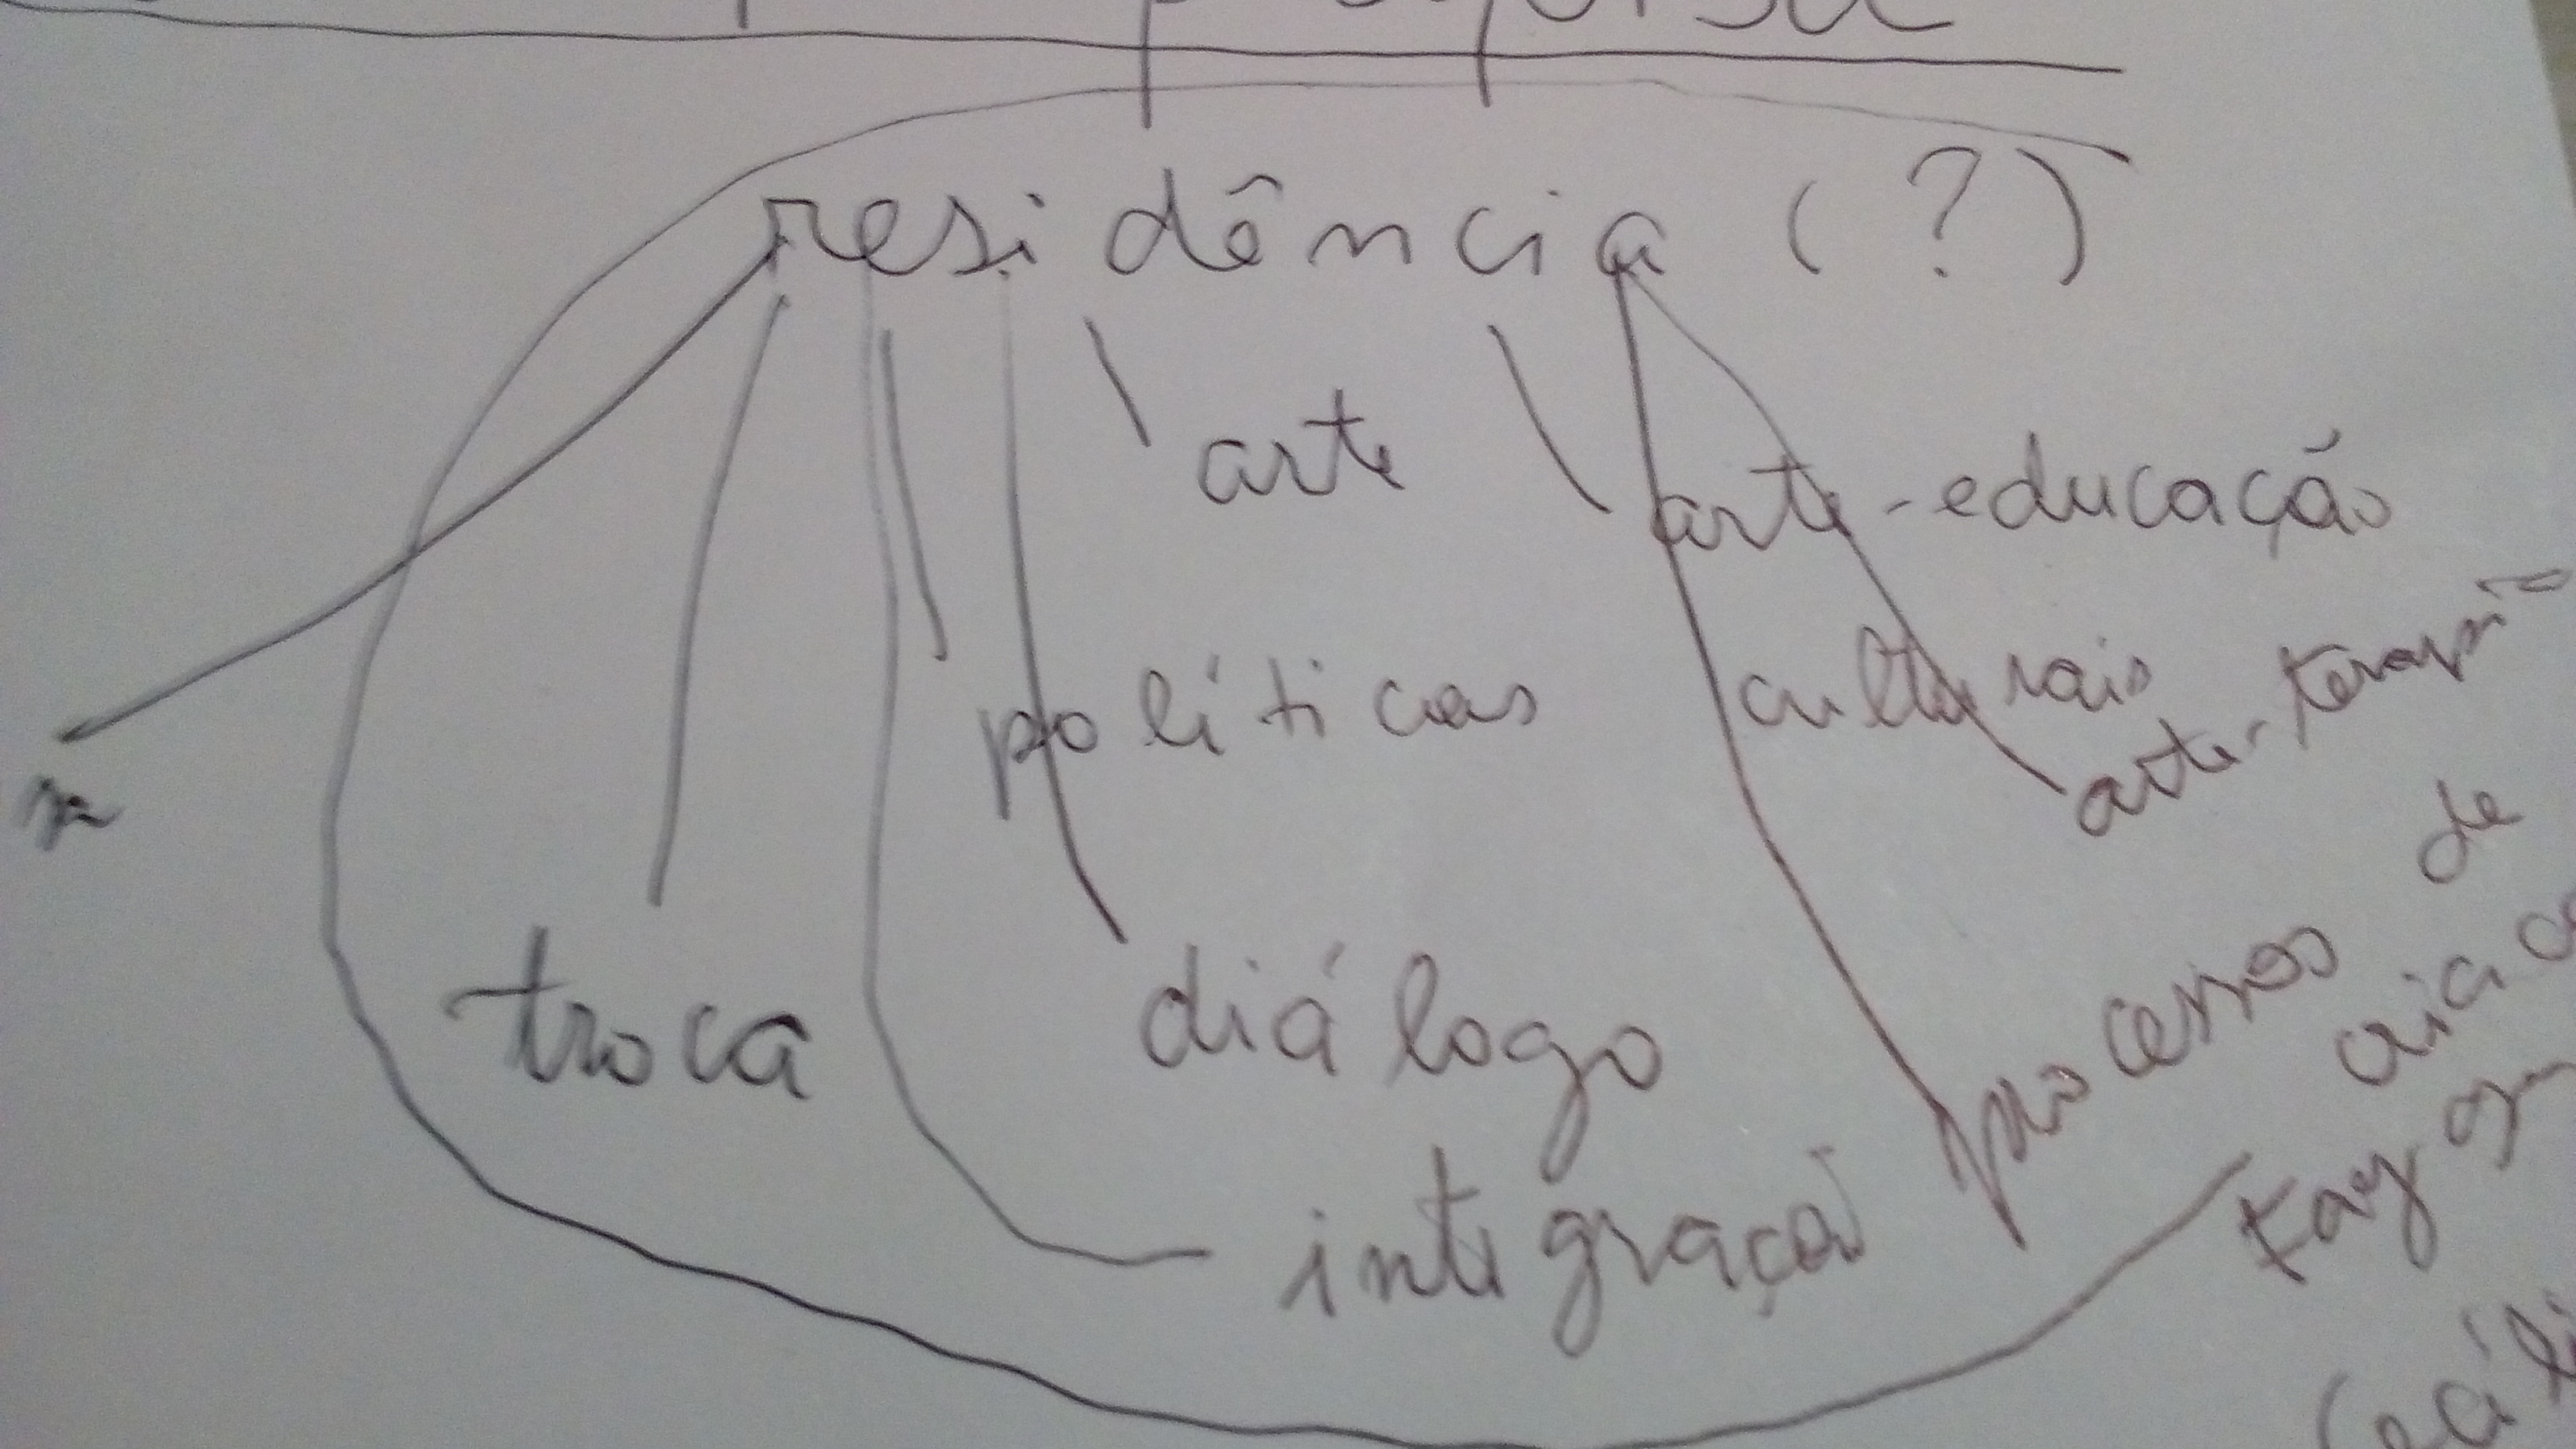 residência (?)
arte
arte-educação
políticas culturais
arte-terapia
troca
diálogo
processos de
integração